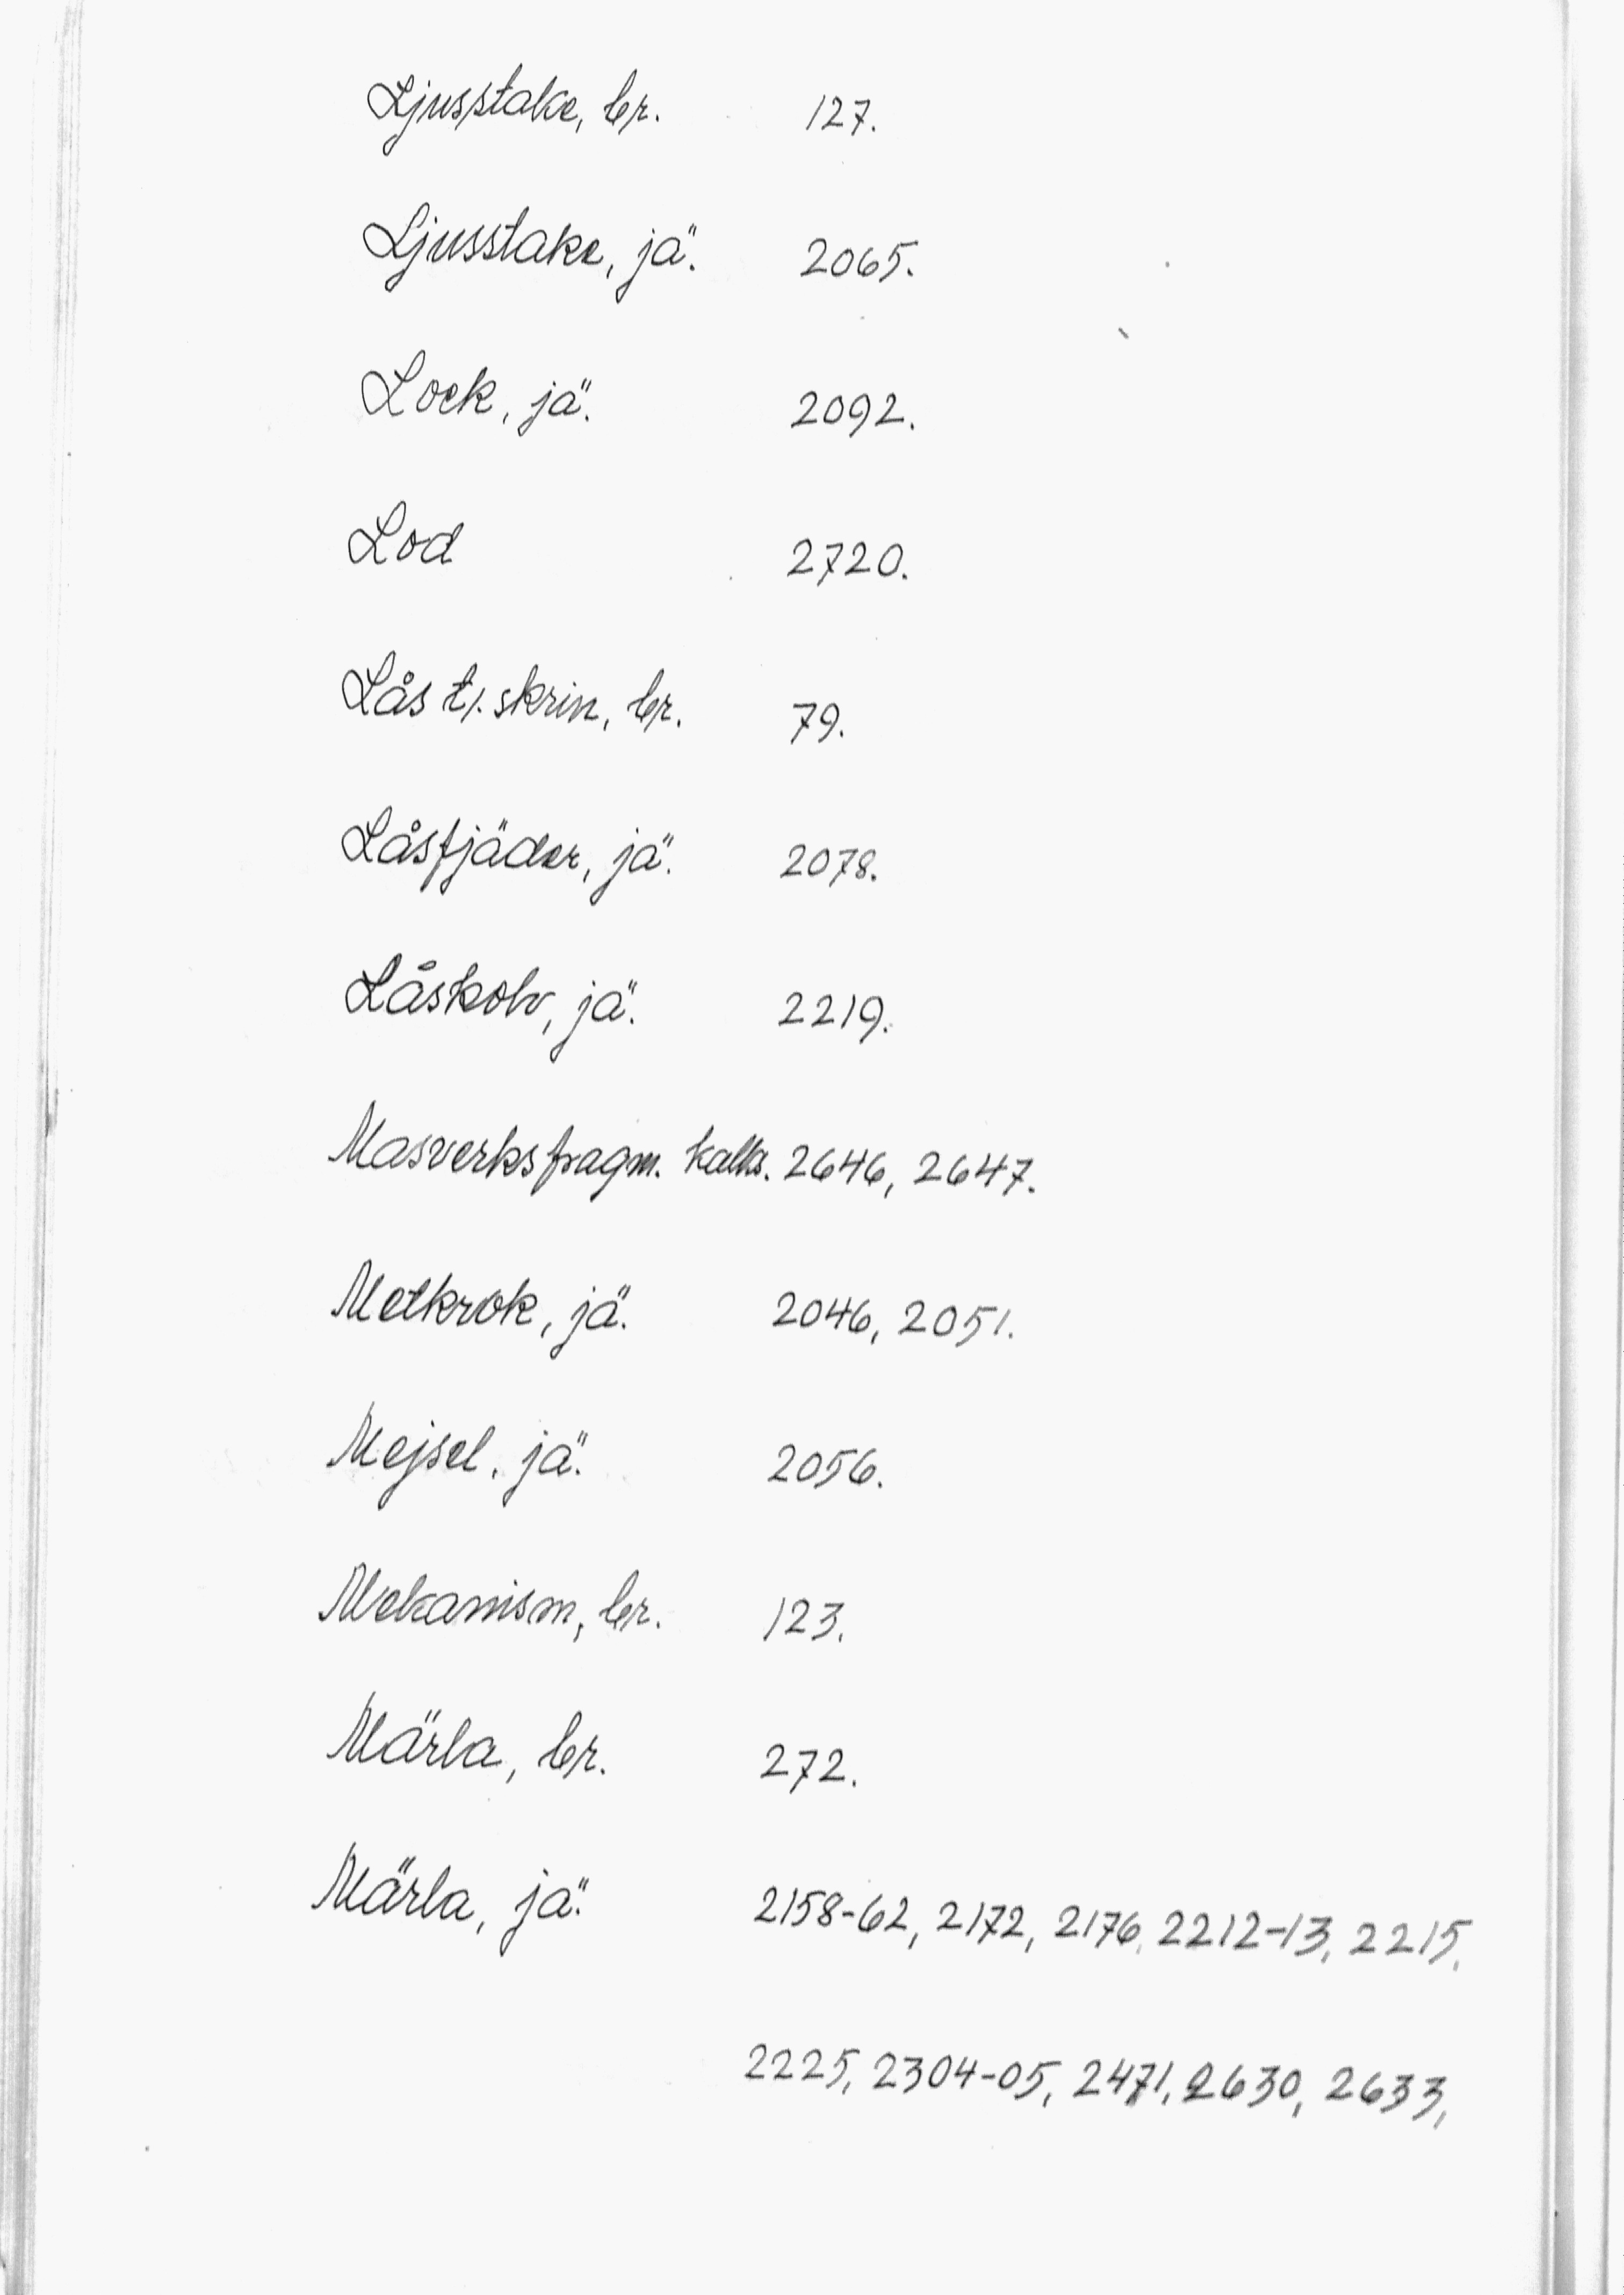 Ljusstake, br. 127.
Ljusstake, jä. 2065.
Lock, jä. 2092.
Lod 2720.
Lås t. skrin, br. 79.
Låsfjäder, jä. 2078.
Låskolv, jä. 2219.
Masverksfragm. kalks. 2646, 2647.
Metkrok, jä. 2046, 2051.
Mejsel, jä. 2056.
Mekanism, br. 123.
Märla, br. 272.
Märla, jä. 2158-62, 2172, 2176, 2212-13, 2215,
2225, 2304-05, 2471, 2630, 2633,